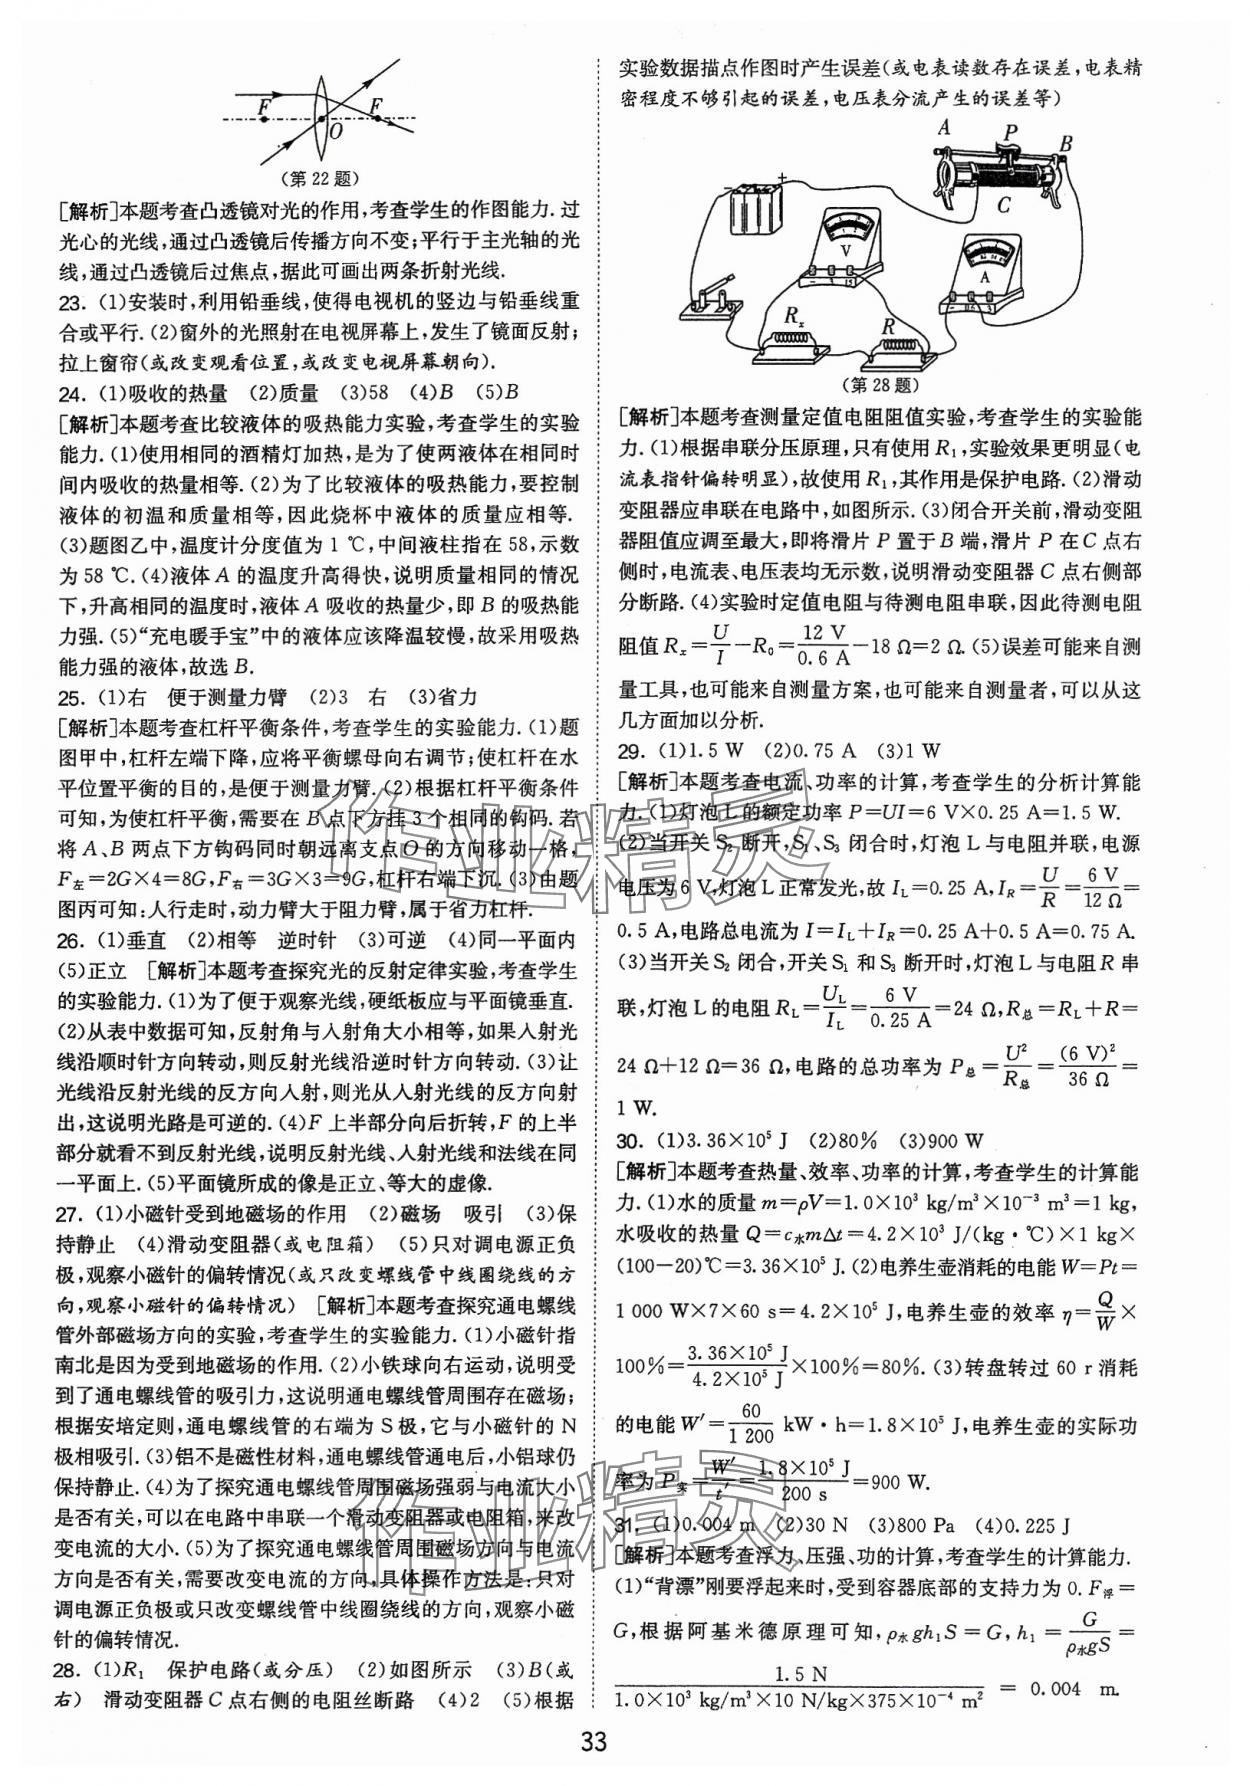 F
F
O
(第 22 题)
[解析]本题考查凸透镜对光的作用,考查学生的作图能力. 过
光心的光线,通过凸透镜后传播方向不变;平行于主光轴的光
线,通过凸透镜后过焦点,据此可画出两条折射光线.
23. (1)安装时,利用铅垂线,使得电视机的竖边与铅垂线重
合或平行. (2)窗外的光照射在电视屏幕上,发生了镜面反射;
拉上窗帘(或改变观看位置,或改变电视屏幕朝向).
24. (1)吸收的热量 (2)质量 (3)58 (4)B (5)B
[解析]本题考查比较液体的吸热能力实验,考查学生的实验
能力. (1)使用相同的酒精灯加热,是为了使两液体在相同时
间内吸收的热量相等. (2)为了比较液体的吸热能力,要控制
液体的初温和质量相等,因此烧杯中液体的质量应相等.
(3)题图乙中,温度计分度值为 1 ℃,中间液柱指在 58,示数
为 58 ℃. (4)液体 A 的温度升高得快,说明质量相同的情况
下,升高相同的温度时,液体 A 吸收的热量少,即 B 的吸热能
力强. (5)“充电暖手宝”中的液体应该降温较慢,故采用吸热
能力强的液体,故选 B.
25. (1)右 便于测量力臂 (2)3 右 (3)省力
[解析]本题考查杠杆平衡条件,考查学生的实验能力. (1)题
图甲中,杠杆左端下降,应将平衡螺母向右调节;使杠杆在水
平位置平衡的目的,是便于测量力臂. (2)根据杠杆平衡条件
可知,为使杠杆平衡,需要在 B 点下方挂 3 个相同的钩码. 若
将 A、B 两点下方钩码同时朝远离支点 O 的方向移动一格,
F左=2G×4=8G,F右=3G×3=9G,杠杆右端下沉. (3)由题
图丙可知:人行走时,动力臂大于阻力臂,属于省力杠杆.
26. (1)垂直 (2)相等 逆时针 (3)可逆 (4)同一平面内
(5)正立 [解析]本题考查探究光的反射定律实验,考查学生
的实验能力. (1)为了便于观察光线,硬纸板应与平面镜垂直.
(2)从表中数据可知,反射角与入射角大小相等,如果入射光
线沿顺时针方向转动,则反射光线沿逆时针方向转动. (3)让
光线沿反射光线的反方向入射,则光从入射光线的反方向射
出,这说明光路是可逆的. (4)F 上半部分向后折转,F 的上半
部分就看不到反射光线,说明反射光线、入射光线和法线在同
一平面上. (5)平面镜所成的像是正立、等大的虚像.
27. (1)小磁针受到地磁场的作用 (2)磁场 吸引 (3)保
持静止 (4)滑动变阻器(或电阻箱) (5)只对调电源正负
极,观察小磁针的偏转情况(或只改变螺线管中线圈绕线的方
向,观察小磁针的偏转情况) [解析]本题考查探究通电螺线
管外部磁场方向的实验,考查学生的实验能力. (1)小磁针指
南北是因为受到地磁场的作用. (2)小铁球向右运动,说明受
到了通电螺线管的吸引力,这说明通电螺线管周围存在磁场;
根据安培定则,通电螺线管的右端为 S 极,它与小磁针的 N
极相吸引. (3)铝不是磁性材料,通电螺线管通电后,小铝球仍
保持静止. (4)为了探究通电螺线管周围磁场强弱与电流大小
是否有关,可以在电路中串联一个滑动变阻器或电阻箱,来改
变电流的大小. (5)为了探究通电螺线管周围磁场方向与电流
方向是否有关,需要改变电流的方向,具体操作方法是:只对
调电源正负极或只改变螺线管中线圈绕线的方向,观察小磁
针的偏转情况.
28. (1)R₁ 保护电路(或分压) (2)如图所示 (3)B(或
右) 滑动变阻器 C 点右侧的电阻丝断路 (4)2 (5)根据
实验数据描点作图时产生误差(或电表读数存在误差,电表精
密程度不够引起的误差,电压表分流产生的误差等)
A P B
C
- +
V
A
Rₓ R
(第 28 题)
[解析]本题考查测量定值电阻阻值实验,考查学生的实验能
力. (1)根据串联分压原理,只有使用 R₁,实验效果更明显(电
流表指针偏转明显),故使用 R₁,其作用是保护电路. (2)滑动
变阻器应串联在电路中,如图所示. (3)闭合开关前,滑动变阻
器阻值应调至最大,即将滑片 P 置于 B 端,滑片 P 在 C 点右
侧时,电流表、电压表均无示数,说明滑动变阻器 C 点右侧部
分断路. (4)实验时定值电阻与待测电阻串联,因此待测电阻
阻值 Rₓ=U/I-R₀=12 V/0.6 A-18 Ω=2 Ω. (5)误差可能来自测
量工具,也可能来自测量方案,也可能来自测量者,可以从这
几方面加以分析.
29. (1)1.5 W (2)0.75 A (3)1 W
[解析]本题考查电流、功率的计算,考查学生的分析计算能
力. (1)灯泡 L 的额定功率 P=UI=6 V×0.25 A=1.5 W.
(2)当开关 S₂ 断开,S₁、S₃ 闭合时,灯泡 L 与电阻并联,电源
电压为 6 V,灯泡 L 正常发光,故 I_L=0.25 A,I_R=U/R=6 V/12 Ω=
0.5 A,电路总电流为 I=I_L+I_R=0.25 A+0.5 A=0.75 A.
(3)当开关 S₂ 闭合,开关 S₁ 和 S₃ 断开时,灯泡 L 与电阻 R 串
联,灯泡 L 的电阻 R_L=U_L/I_L=6 V/0.25 A=24 Ω,R总=R_L+R=
24 Ω+12 Ω=36 Ω,电路的总功率为 P总=U²/R总=(6 V)²/36 Ω=
1 W.
30. (1)3.36×10⁵ J (2)80% (3)900 W
[解析]本题考查热量、效率、功率的计算,考查学生的计算能
力. (1)水的质量 m=ρV=1.0×10³ kg/m³×10⁻³ m³=1 kg,
水吸收的热量 Q=c水mΔt=4.2×10³ J/(kg·℃)×1 kg×
(100-20)℃=3.36×10⁵ J. (2)电养生壶消耗的电能 W=Pt=
1 000 W×7×60 s=4.2×10⁵ J,电养生壶的效率 η=Q/W×
100%=3.36×10⁵ J/4.2×10⁵ J×100%=80%. (3)转盘转过 60 r 消耗
的电能 W′=60/1 200 kW·h=1.8×10⁵ J,电养生壶的实际功
率为 P实=W′/t′=1.8×10⁵ J/200 s=900 W.
31. (1)0.004 m (2)30 N (3)800 Pa (4)0.225 J
[解析]本题考查浮力、压强、功的计算,考查学生的计算能力.
(1)“背漂”刚要浮起来时,受到容器底部的支持力为 0. F浮=
G,根据阿基米德原理可知,ρ水gh₁S=G,h₁=G/ρ水gS=
1.5 N/1.0×10³ kg/m³×10 N/kg×375×10⁻⁴ m² = 0.004 m.
33
作业精灵
作业精灵